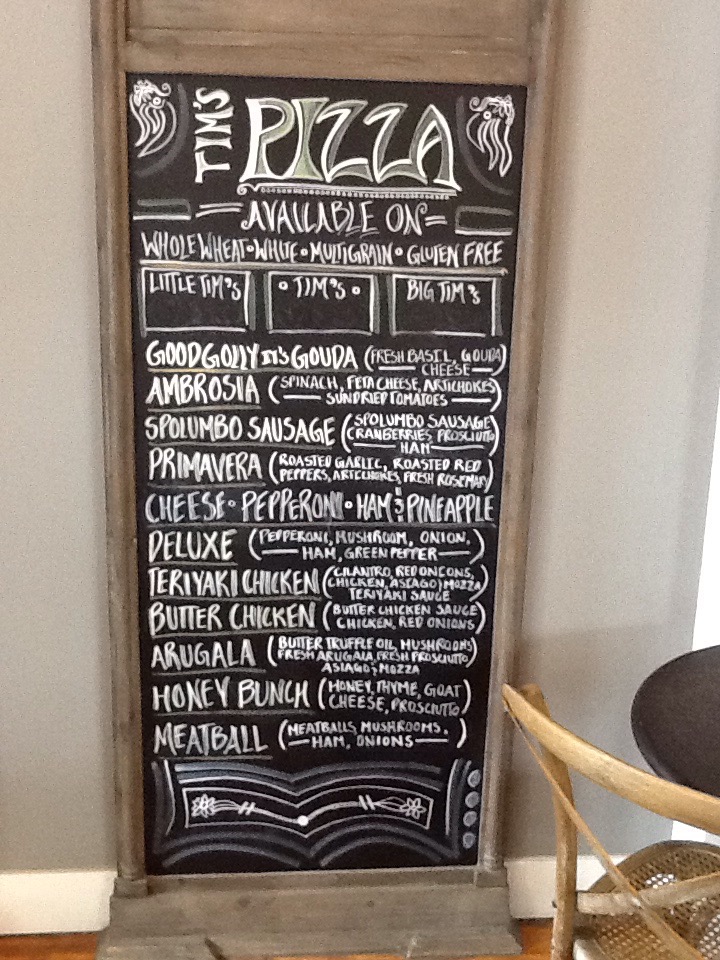 TIM'S PIZZA
AVAILABLE ON
WHOLE WHEAT • WHITE • MULTIGRAIN • GLUTEN FREE
LITTLE TIM'S
• TIM'S •
BIG TIM'S
GOOD GOLLY IT'S GOUDA (FRESH BASIL, GOUDA
CHEESE)
AMBROSIA (SPINACH, FETA CHEESE, ARTICHOKES
SUNDRIED TOMATOES)
SPOLUMBO SAUSAGE (SPOLUMBO SAUSAGE
CRANBERRIES, PROSCIUTTO
HAM)
PRIMAVERA (ROASTED GARLIC, ROASTED RED
PEPPERS, ARTICHOKES, FRESH ROSEMARY)
CHEESE • PEPPERONI • HAM & PINEAPPLE
DELUXE (PEPPERONI, MUSHROOM, ONION,
HAM, GREEN PEPPER)
TERIYAKI CHICKEN (CILANTRO, RED ONIONS,
CHICKEN, ASIAGO & MOZZA
TERIYAKI SAUCE)
BUTTER CHICKEN (BUTTER CHICKEN SAUCE
CHICKEN, RED ONIONS)
ARUGALA (BUTTER TRUFFLE OIL, MUSHROOMS
FRESH ARUGALA, FRESH PROSCIUTTO
ASIAGO & MOZZA)
HONEY BUNCH (HONEY, THYME, GOAT
CHEESE, PROSCIUTTO)
MEATBALL (MEATBALLS, MUSHROOMS,
HAM, ONIONS)